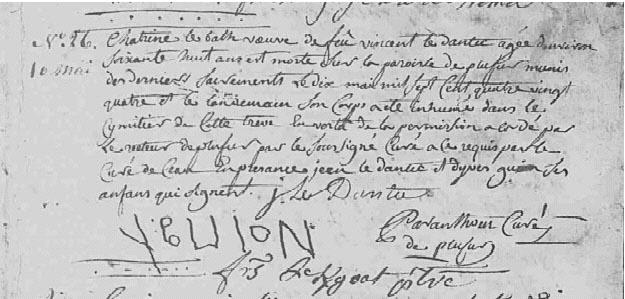 No. 26. Chatrine le balh veuve de feu vincent le dantu agée d'environ
10 mai soixante huit ans est morte sur la paroisse de plufur munis
des derniers sacrements le dix mai mil sept cent quatre vingt
quatre et le lendemain son corps a eté inhumés dans le
cymitier de cette treve en vertû de la permission accordé par
le recteur de plufur par le soussigne curé a ce requis par le
curé de en presance jean le dantu et yves ses
anfans qui signent. j: Le Dantu
Paranthoen Curé
de plufur
frs ptre